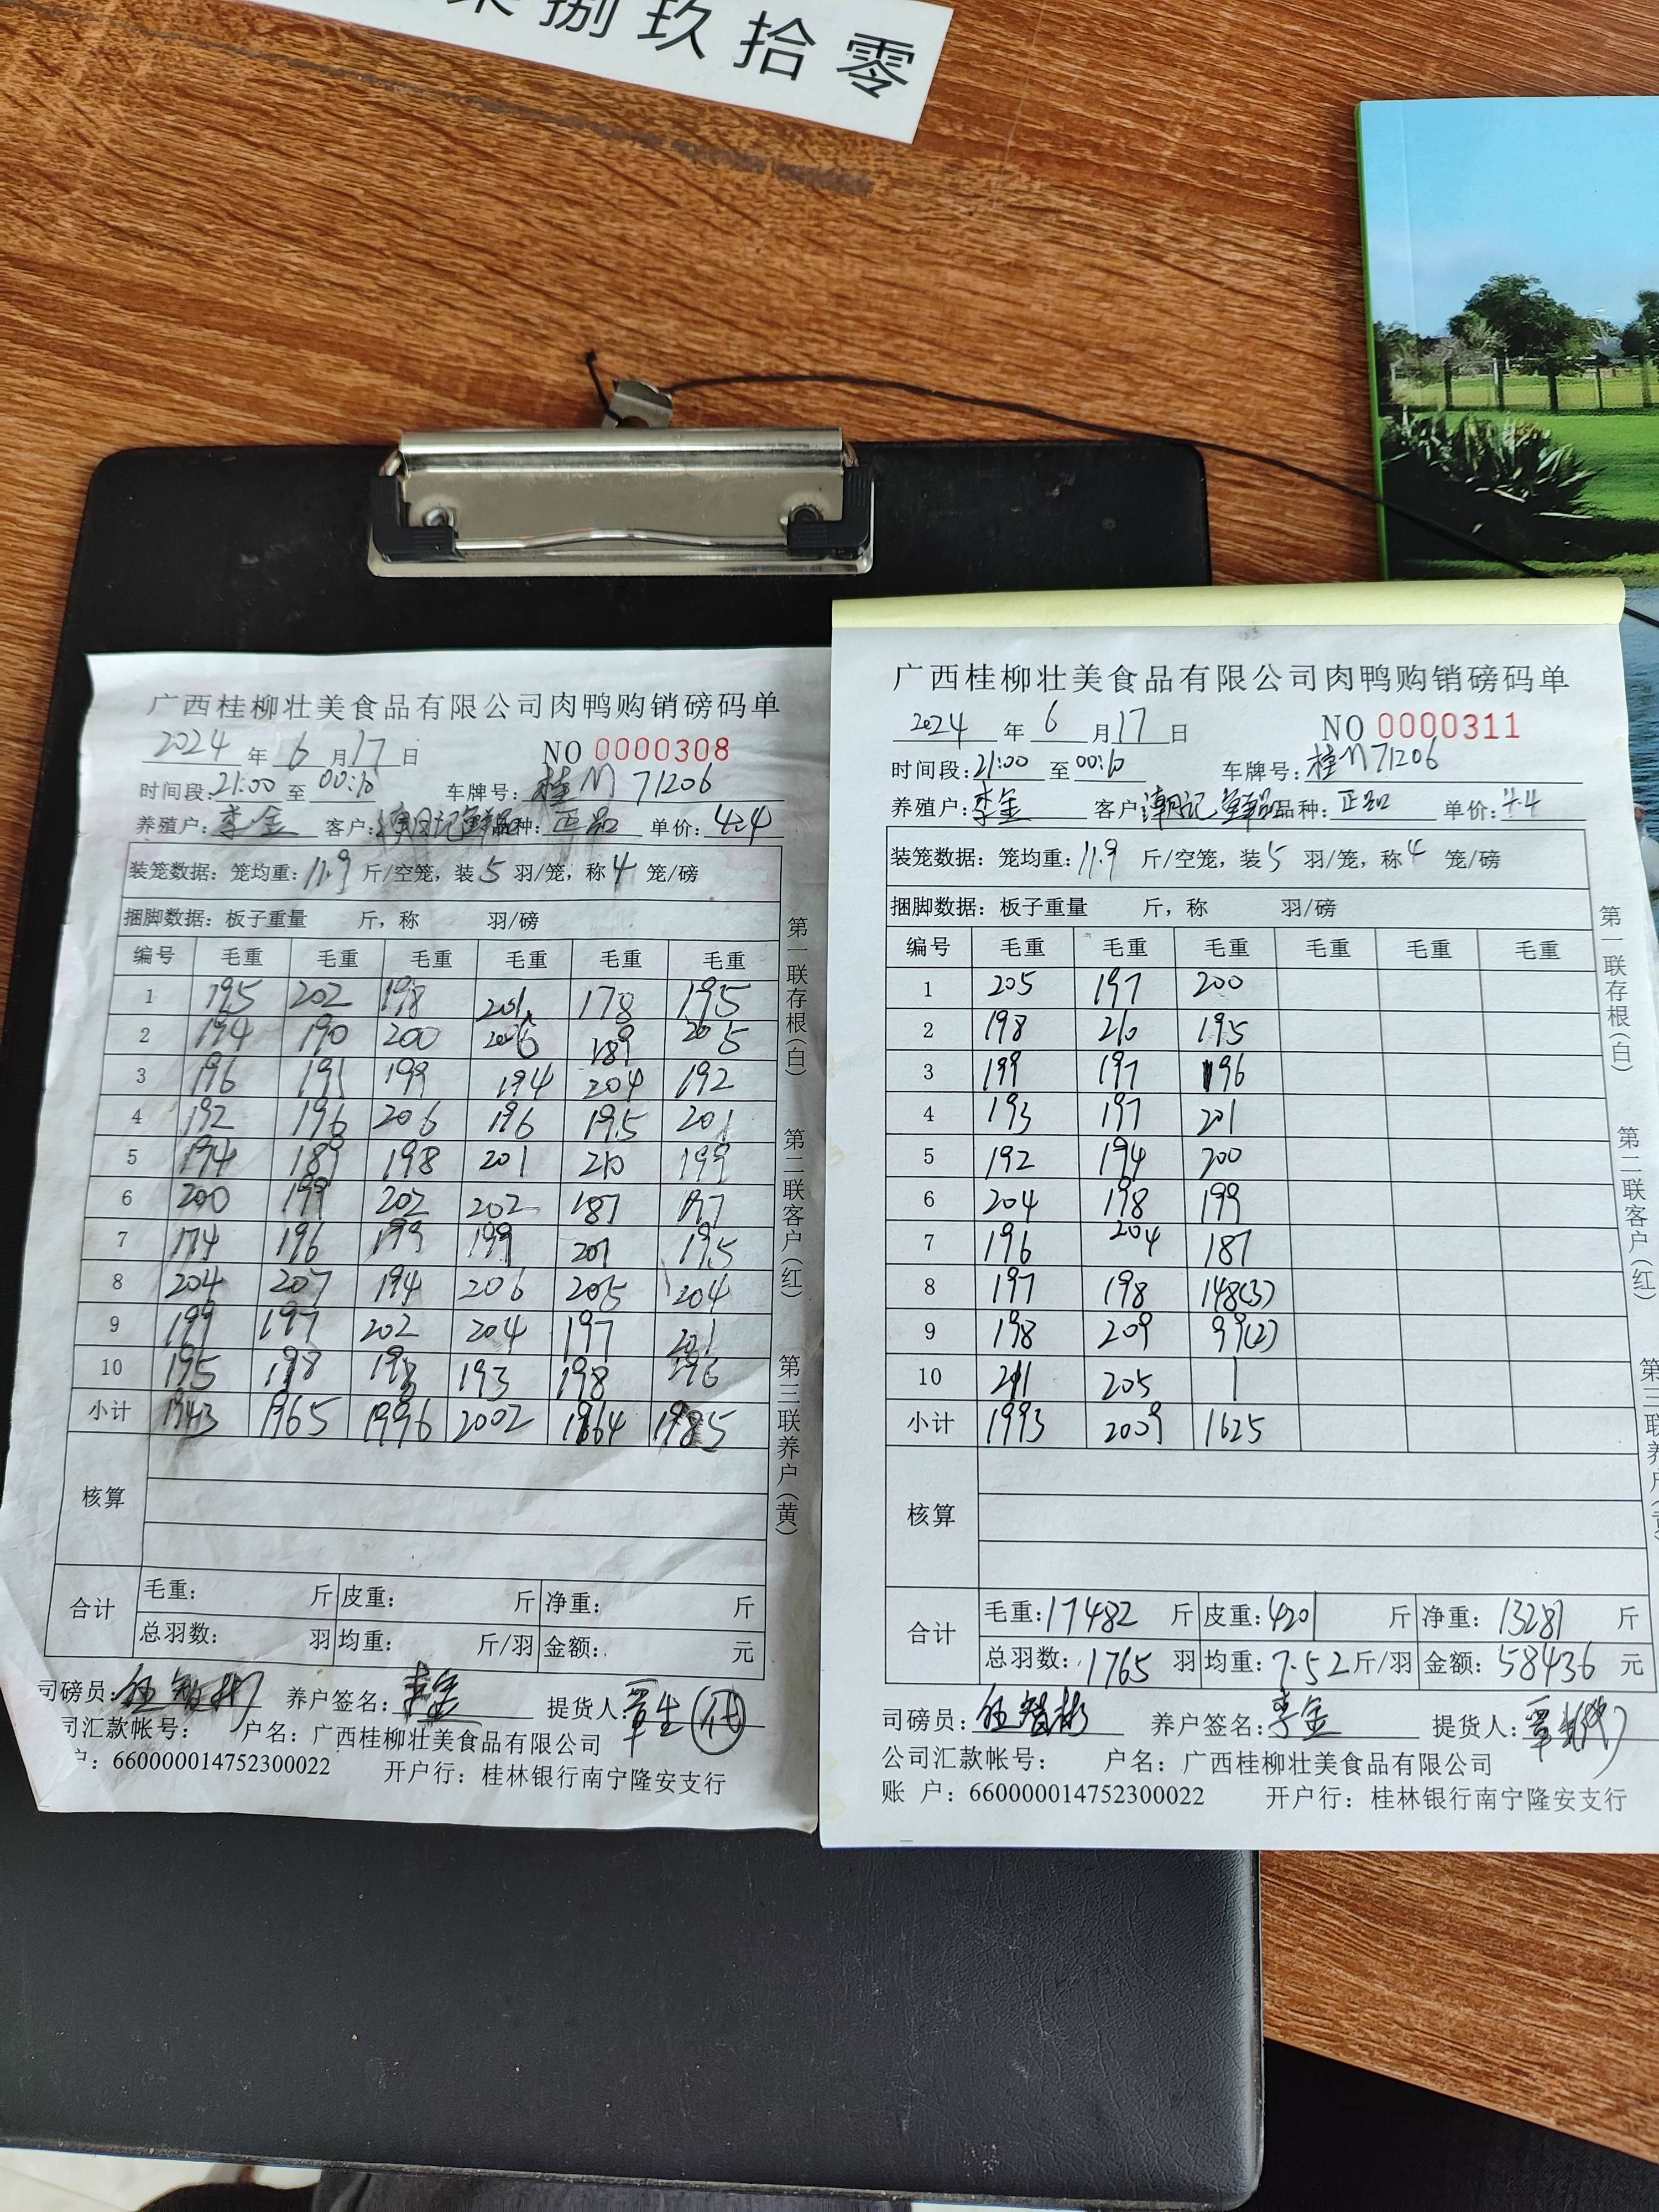 捌玖拾零
广西桂柳壮美食品有限公司肉鸭购销磅码单
2024 年 6 月 17 日 NO 0000308
时间段:21:00 至 00:10 车牌号:桂M 71206
养殖户:李金 客户: 品种:正品 单价:4.4
装笼数据:笼均重:11.9 斤/空笼,装5 羽/笼,称4 笼/磅
捆脚数据:板子重量 斤,称 羽/磅
编号 毛重 毛重 毛重 毛重 毛重 毛重
1 195 202 198 201 178 195
2 194 190 200 206 189 205
3 196 191 199 194 204 192
4 192 196 206 196 195 201
5 194 189 198 201 210 199
6 200 199 202 202 187 197
7 174 196 199 199 201 195
8 204 207 194 206 205 204
9 199 197 202 204 197 201
10 195 198 198 193 198 196
小计 1943 1965 1996 2002 1964 1985
核算
合计 毛重: 斤 皮重: 斤 净重: 斤
总羽数: 羽 均重: 斤/羽 金额: 元
司磅员:伍智彬 养户签名:李金 提货人:覃生(代)
司汇款帐号: 户名:广西桂柳壮美食品有限公司
户:660000014752300022 开户行:桂林银行南宁隆安支行
第一联存根(白) 第二联客户(红) 第三联养户(黄)
广西桂柳壮美食品有限公司肉鸭购销磅码单
2024 年 6 月 17 日 NO 0000311
时间段:21:00 至 00:10 车牌号:桂M71206
养殖户:李金 客户: 品种:正品 单价:4.4
装笼数据:笼均重:11.9 斤/空笼,装5 羽/笼,称4 笼/磅
捆脚数据:板子重量 斤,称 羽/磅
编号 毛重 毛重 毛重 毛重 毛重 毛重
1 205 197 200
2 198 210 195
3 199 197 196
4 193 197 201
5 192 194 200
6 204 198 199
7 196 204 187
8 197 198 148(3)
9 198 209 99(2)
10 211 205 1
小计 1993 2009 1625
核算
合计 毛重:17482 斤 皮重:4201 斤 净重:13281 斤
总羽数:1765 羽 均重:7.52 斤/羽 金额:58436 元
司磅员:伍智彬 养户签名:李金 提货人:覃生(代)
公司汇款帐号: 户名:广西桂柳壮美食品有限公司
账 户:660000014752300022 开户行:桂林银行南宁隆安支行
第一联存根(白) 第二联客户(红) 第三联养